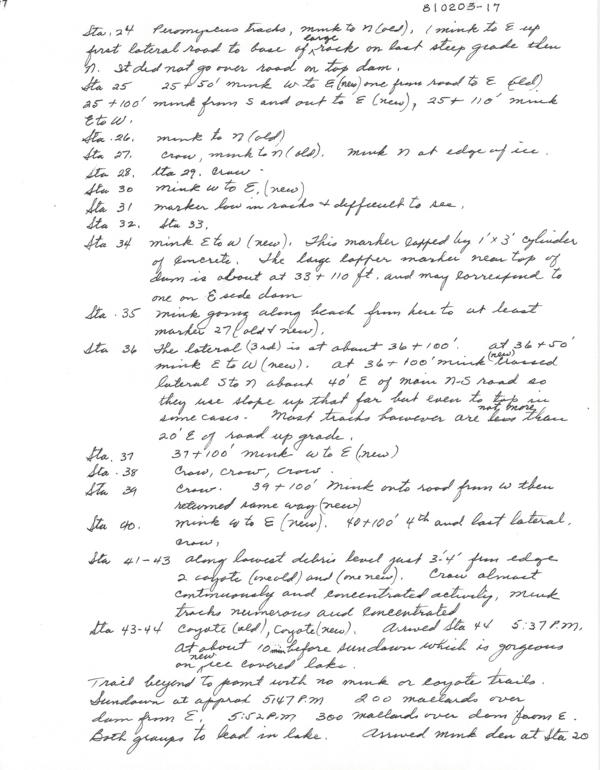 810203-17
Sta. 24 Peromyscus tracks, mink to N (old), 1 mink to E up
first lateral road to base of large rock on last steep grade then
N. It did not go over road on top dam.
Sta 25 25+50' mink W to E (new) one from road to E (old)
25+100' mink from S and out to E (new), 25+110' mink
E to W.
Sta. 26. mink to N (old)
Sta 27. crow, mink to N (old). Mink N at edge of ice.
Sta 28. Sta 29. Crow.
Sta 30 mink W to E. (new)
Sta 31 marker low in rocks + difficult to see.
Sta 32. Sta 33.
Sta 34 mink E to W (new). This marker capped by 1' x 3' cylinder
of concrete. The large capper marker near top of
dam is about at 33+110 ft. and may correspond to
one on E side dam
Sta. 35 mink going along beach from here to at least
marker 27 (old + new).
Sta 36 The lateral (3rd) is at about 36+100'. at 36+50'
mink E to W (new). At 36+100' mink (new) crossed
lateral S to N about 40' E of main N-S road so
they use slope up that far but even to top in
some cases. Most tracks however are not more less than
20' E of road up grade.
Sta. 37 37+100' mink W to E (new)
Sta. 38 Crow, crow, crow.
Sta 39 Crow. 39+100' Mink onto road from W then
returned same way (new)
Sta 40. mink W to E (new). 40+100' 4th and last lateral.
Crow,
Sta 41-43 along lowest debris level just 3'-4' from edge
2 coyote (one old) and (one new). Crow almost
continuously and concentrated activity, mink
tracks numerous and concentrated
Sta 43-44 Coyote (old), Coyote (new). Arrived Sta 44 5:37 P.M.
At about 10 min before sundown which is gorgeous
on new ice covered lake.
Trail beyond to point with no mink or coyote trails.
Sundown at approx 5:47 P.M 200 mallards over
dam from E. 5:52 P.M 300 mallards over dam from E.
Both groups to lead in lake. Arrived mink den at Sta 20